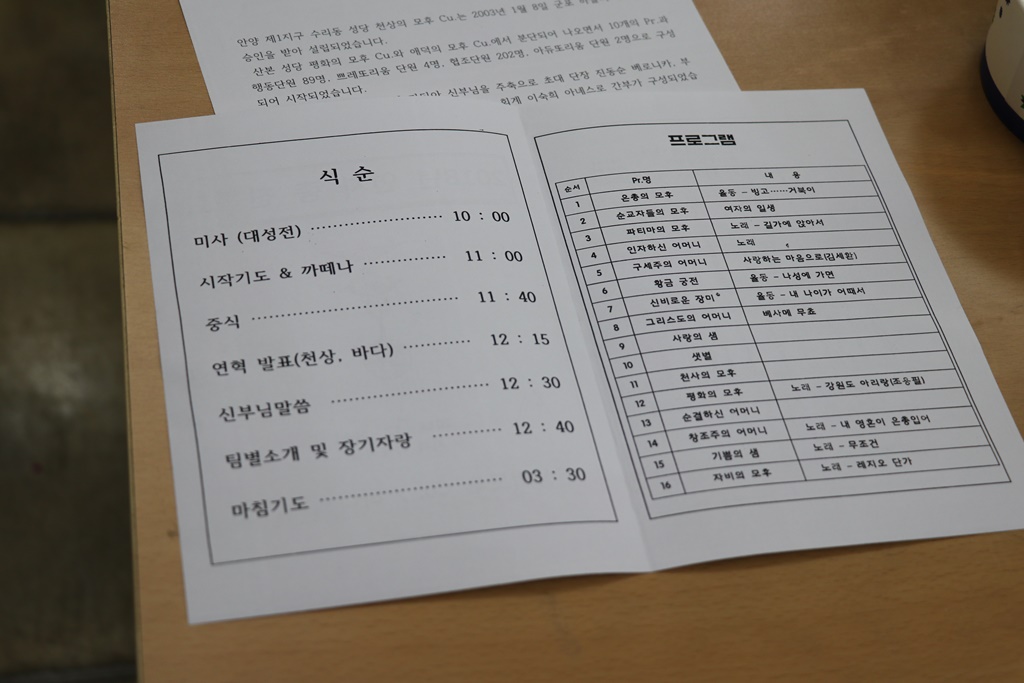 안양 제1지구 수리동 성당 천상의 모후 Cu.는 2003년 1월 8일 군포
승인을 받아 설립되었습니다.
산본 성당 평화의 모후 Cu.와 애덕의 모후 Cu.에서 분단되어 나오면서 10개의 Pr.과
행동단원 89명, 쁘레또리움 단원 4명, 협조단원 202명, 아듀또리움 단원 2명으로 구성
되어 시작되었습니다.
신부님을 주축으로 초대 단장 진동순 베로니카, 부
회계 이숙희 아네스로 간부가 구성되었습
식 순
미사 (대성전) ···················· 10 : 00
시작기도 & 까떼나 ············· 11 : 00
중식 ································ 11 : 40
연혁 발표(천상, 바다) ·········· 12 : 15
신부님말씀 ························ 12 : 30
팀별소개 및 장기자랑 ··········· 12 : 40
마침기도 ··························· 03 : 30
프로그램
순서 Pr.명 내 용
1 은총의 모후 율동 - 빙고······거북이
2 순교자들의 모후 여자의 일생
3 파티마의 모후 노래 - 길가에 앉아서
4 인자하신 어머니 노래
5 구세주의 어머니 사랑하는 마음으로(김세환)
6 황금 궁전 율동 - 나성에 가면
7 신비로운 장미* 율동 - 내 나이가 어때서
8 그리스도의 어머니 베사메 무쵸
9 사랑의 샘
10 샛별
11 천사의 모후
12 평화의 모후 노래 - 강원도 아리랑(조용필)
13 순결하신 어머니
14 창조주의 어머니 노래 - 내 영혼이 은총입어
15 기쁨의 샘 노래 - 무조건
16 자비의 모후 노래 - 레지오 단가